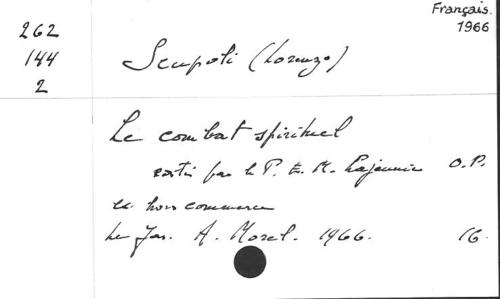 Français.
1966
262
144
2
Scupoli (Lorenzo)
Le combat spirituel
par le P. E. M. Lajeunie O.P.
ex. hors commerce
Le Jas. A. Morel. 1966. 16.